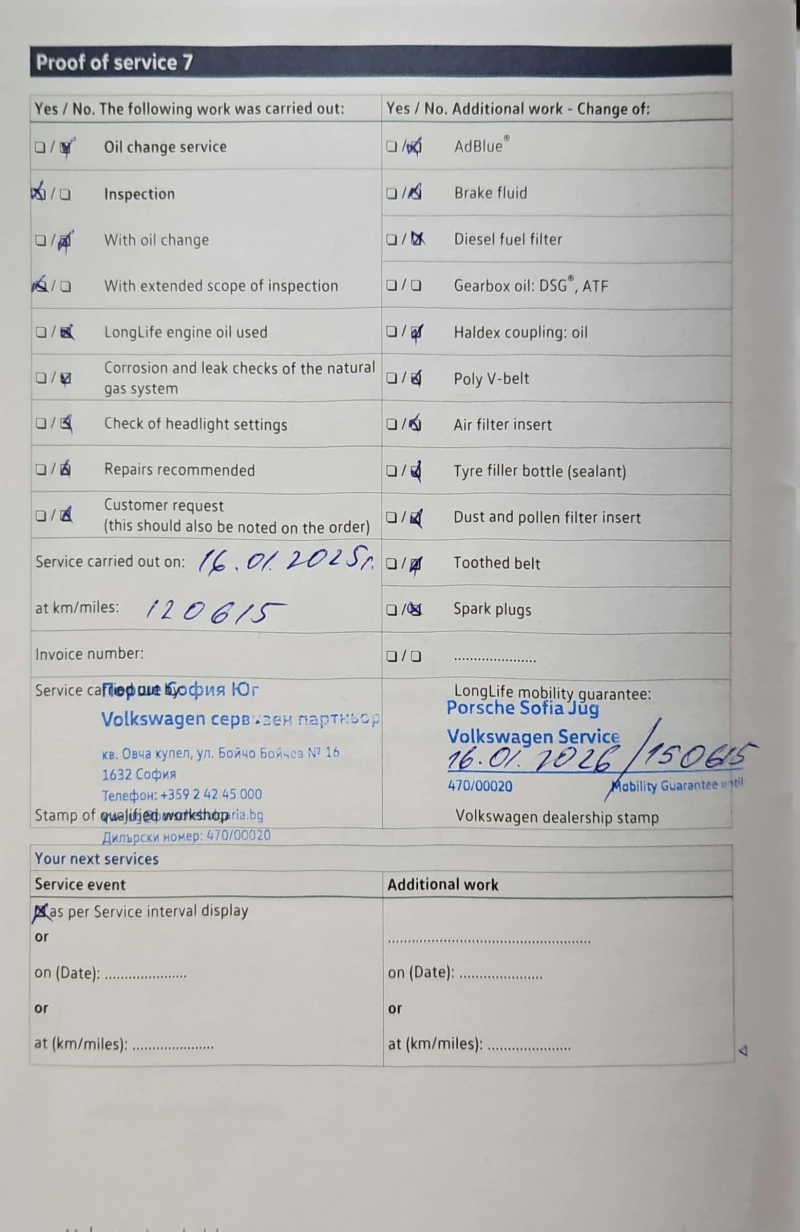 Proof of service 7
Yes / No. The following work was carried out:
Oil change service
Inspection
With oil change
With extended scope of inspection
LongLife engine oil used
Corrosion and leak checks of the natural
gas system
Check of headlight settings
Repairs recommended
Customer request
(this should also be noted on the order)
Service carried out on: 16.01.2025г.
at km/miles: 120615
Invoice number:
Yes / No. Additional work - Change of:
AdBlue®
Brake fluid
Diesel fuel filter
Gearbox oil: DSG®, ATF
Haldex coupling: oil
Poly V-belt
Air filter insert
Tyre filler bottle (sealant)
Dust and pollen filter insert
Toothed belt
Spark plugs
....................
Service carried out by:
Порше София Юг
Volkswagen сервизен партньор
кв. Овча купел, ул. Бойчо Бойчев № 16
1632 София
Телефон: +359 2 42 45 000
Stamp of qualified workshop
Дилърски номер: 470/00020
LongLife mobility guarantee:
Porsche Sofia Jug
Volkswagen Service
16.01.2026/150615
470/00020 Mobility Guarantee until
Volkswagen dealership stamp
Your next services
Service event
as per Service interval display
or
on (Date): ....................
or
at (km/miles): ....................
Additional work
..................................................
on (Date): ....................
or
at (km/miles): ....................